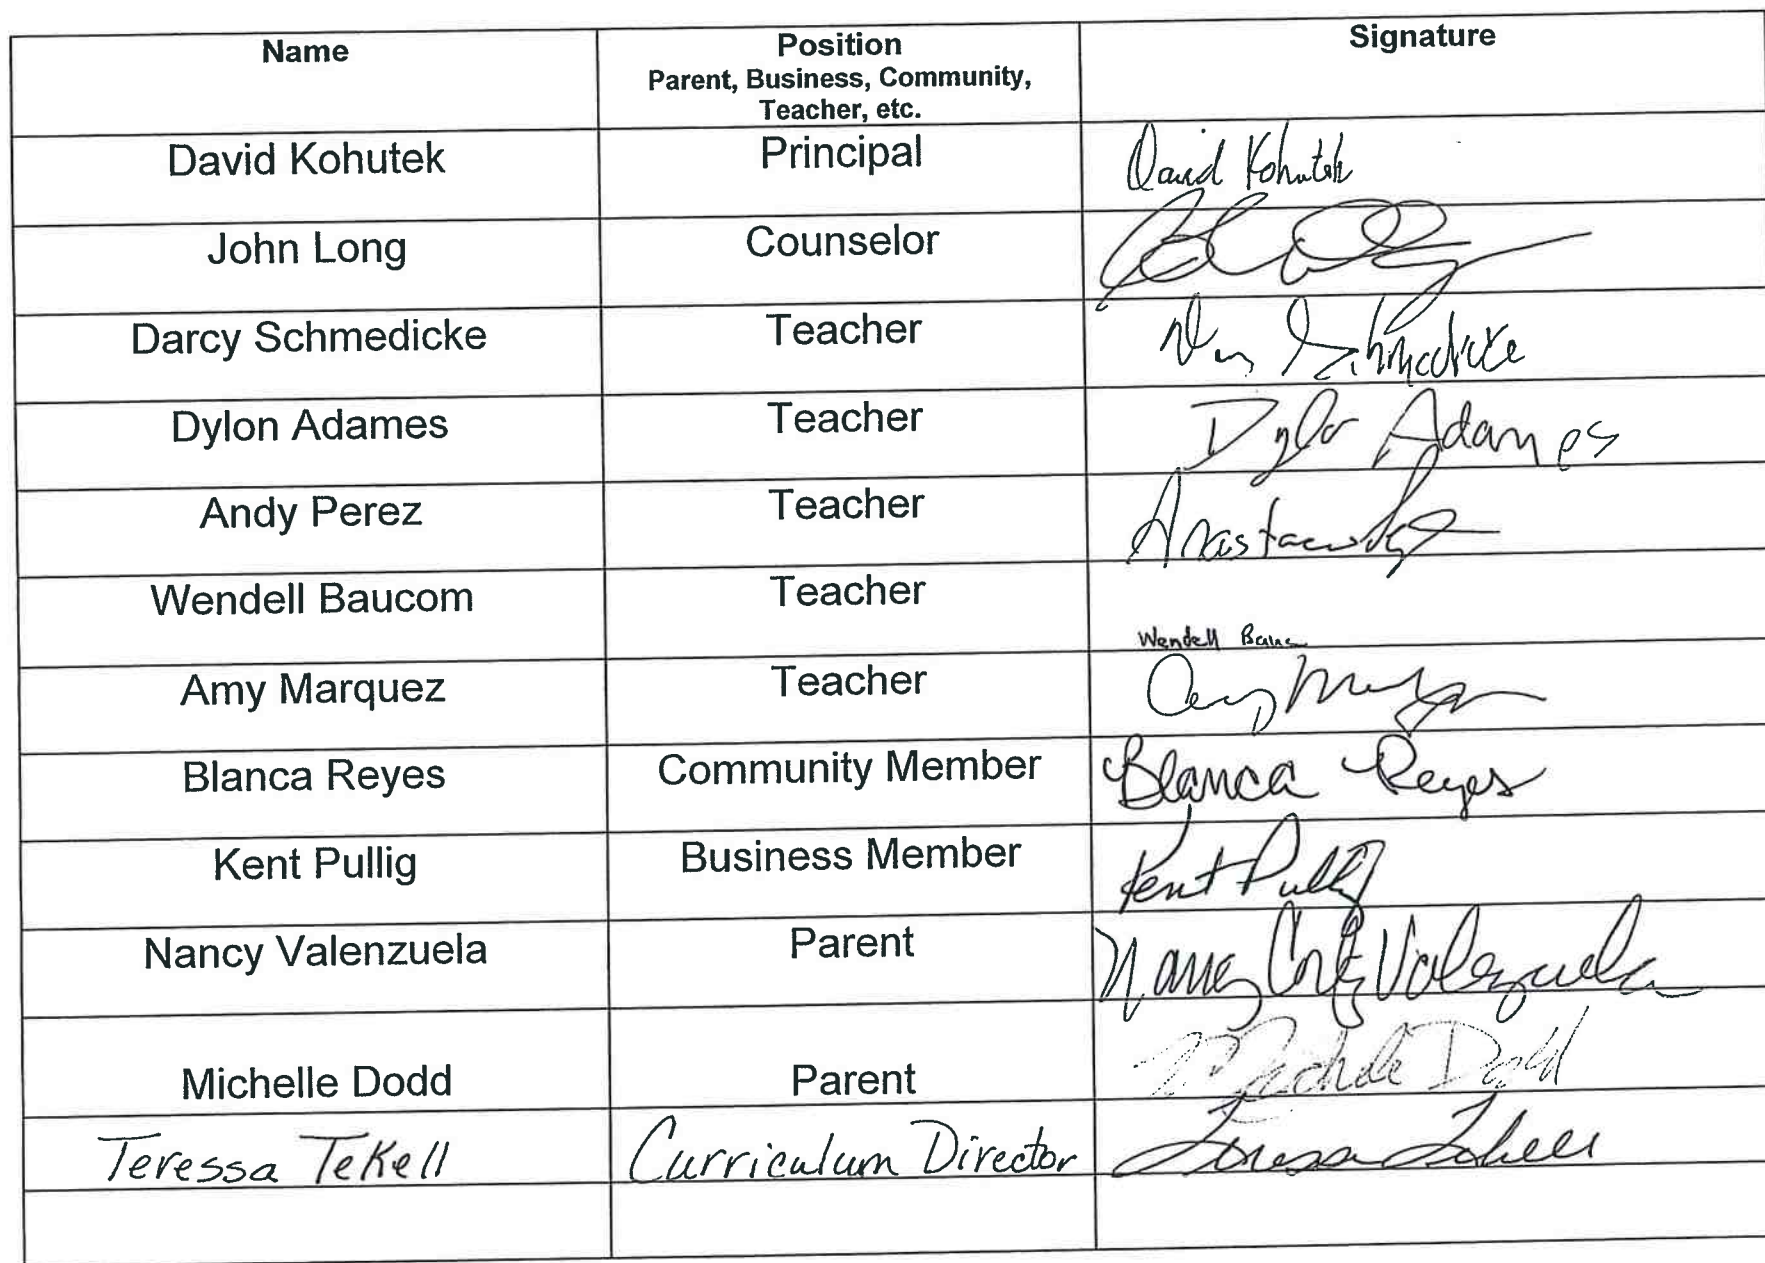 Name Position Signature
Parent, Business, Community,
Teacher, etc.
David Kohutek Principal David Kohutek
John Long Counselor
Darcy Schmedicke Teacher Schmedicke
Dylon Adames Teacher Dylo Adames
Andy Perez Teacher
Wendell Baucom Teacher Wendell
Amy Marquez Teacher Amy
Blanca Reyes Community Member Blanca Reyes
Kent Pullig Business Member Kent Pullig
Nancy Valenzuela Parent Nancy Valenzuela
Michelle Dodd Parent Michele Dodd
Teressa Tekell Curriculum Director Teressa Tekell